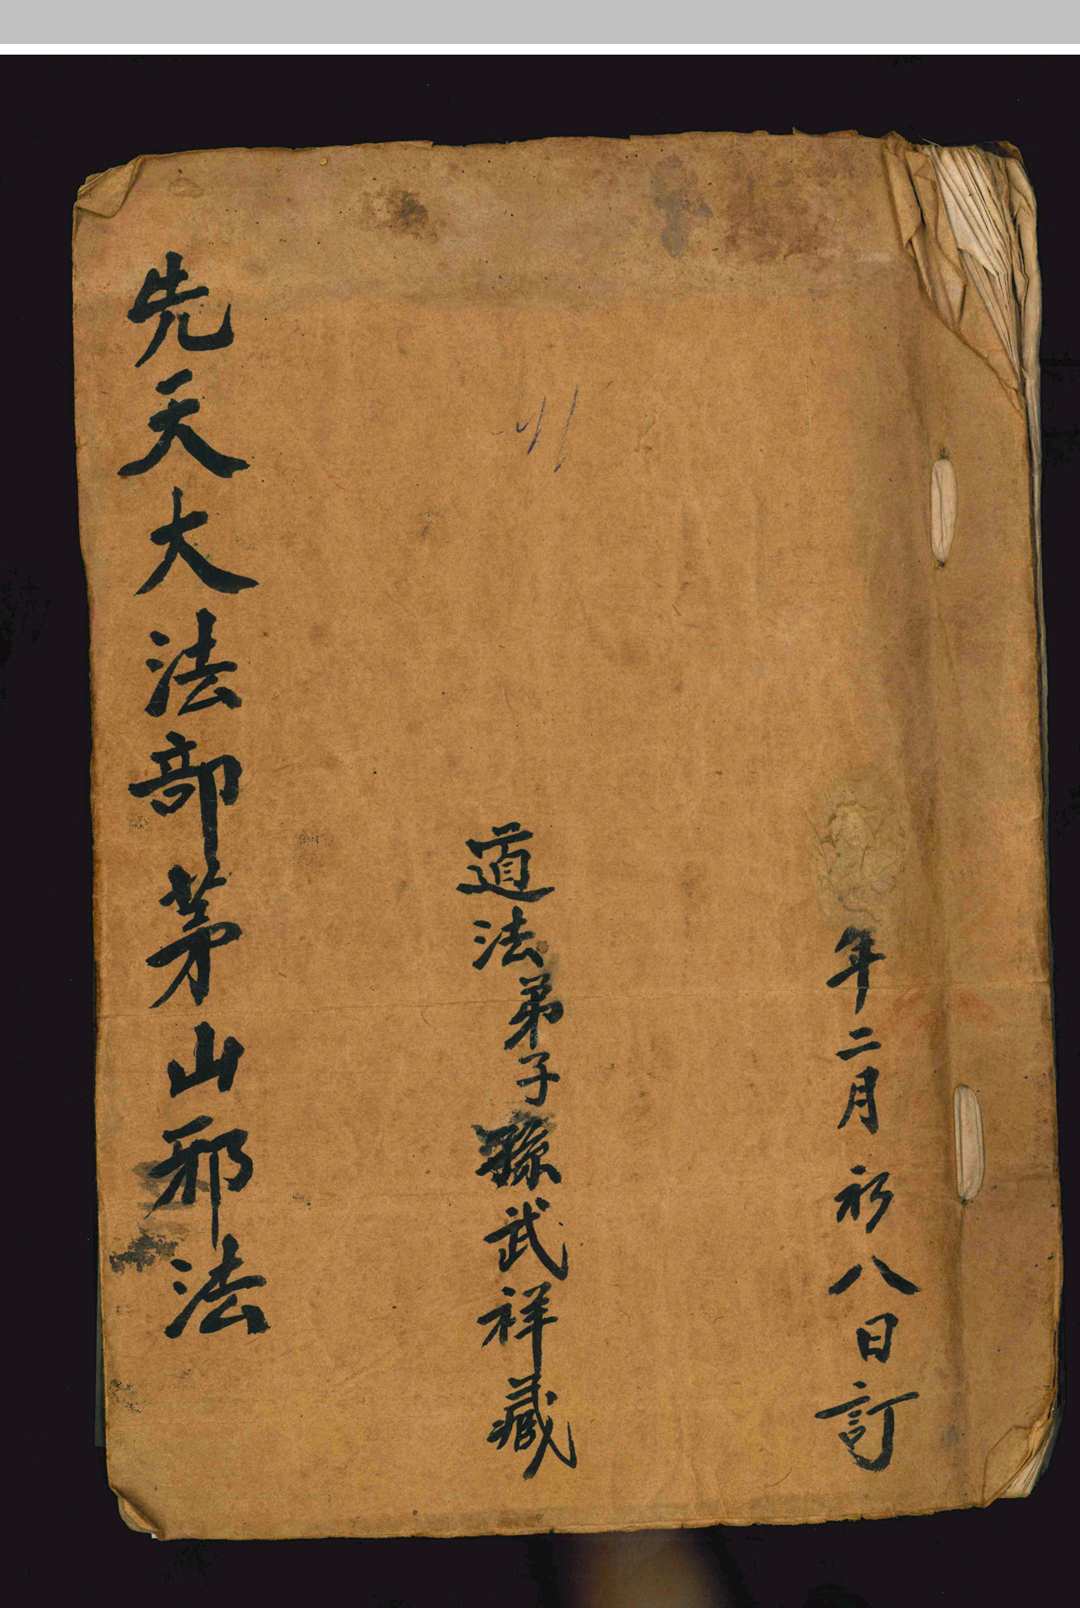 年二月初八日訂
道法弟子孫武祥藏
先天大法部茅山邪法